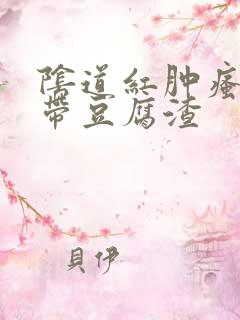 陰道紅肿瘙
帶豆腐渣
貝伊